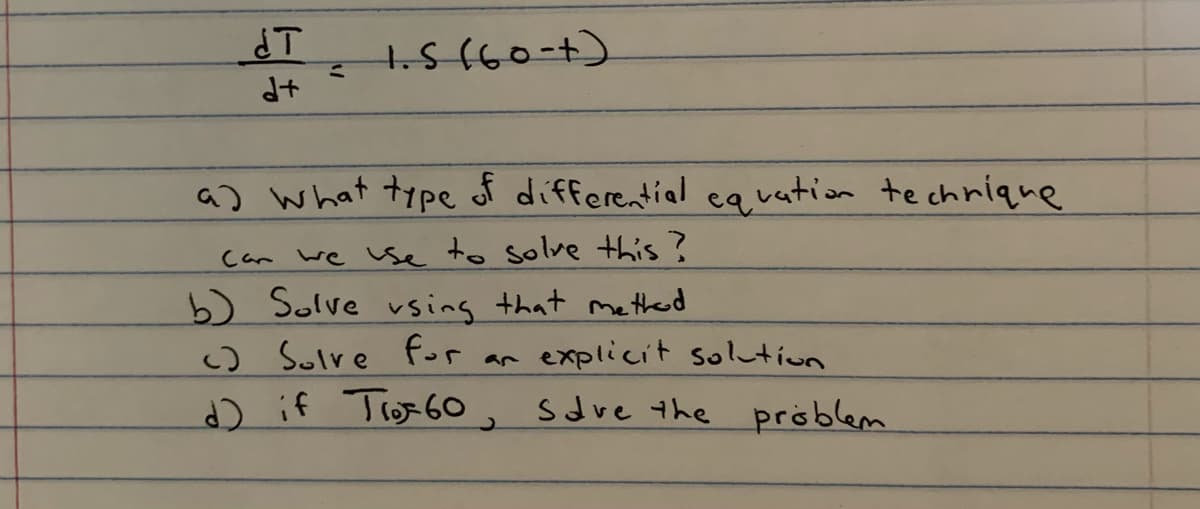 dT
dt = 1.5 (60-t)
a) What type of differential equation technique
can we use to solve this?
b) Solve using that method
c) Solve for an explicit solution
d) if T(0)=60, solve the problem